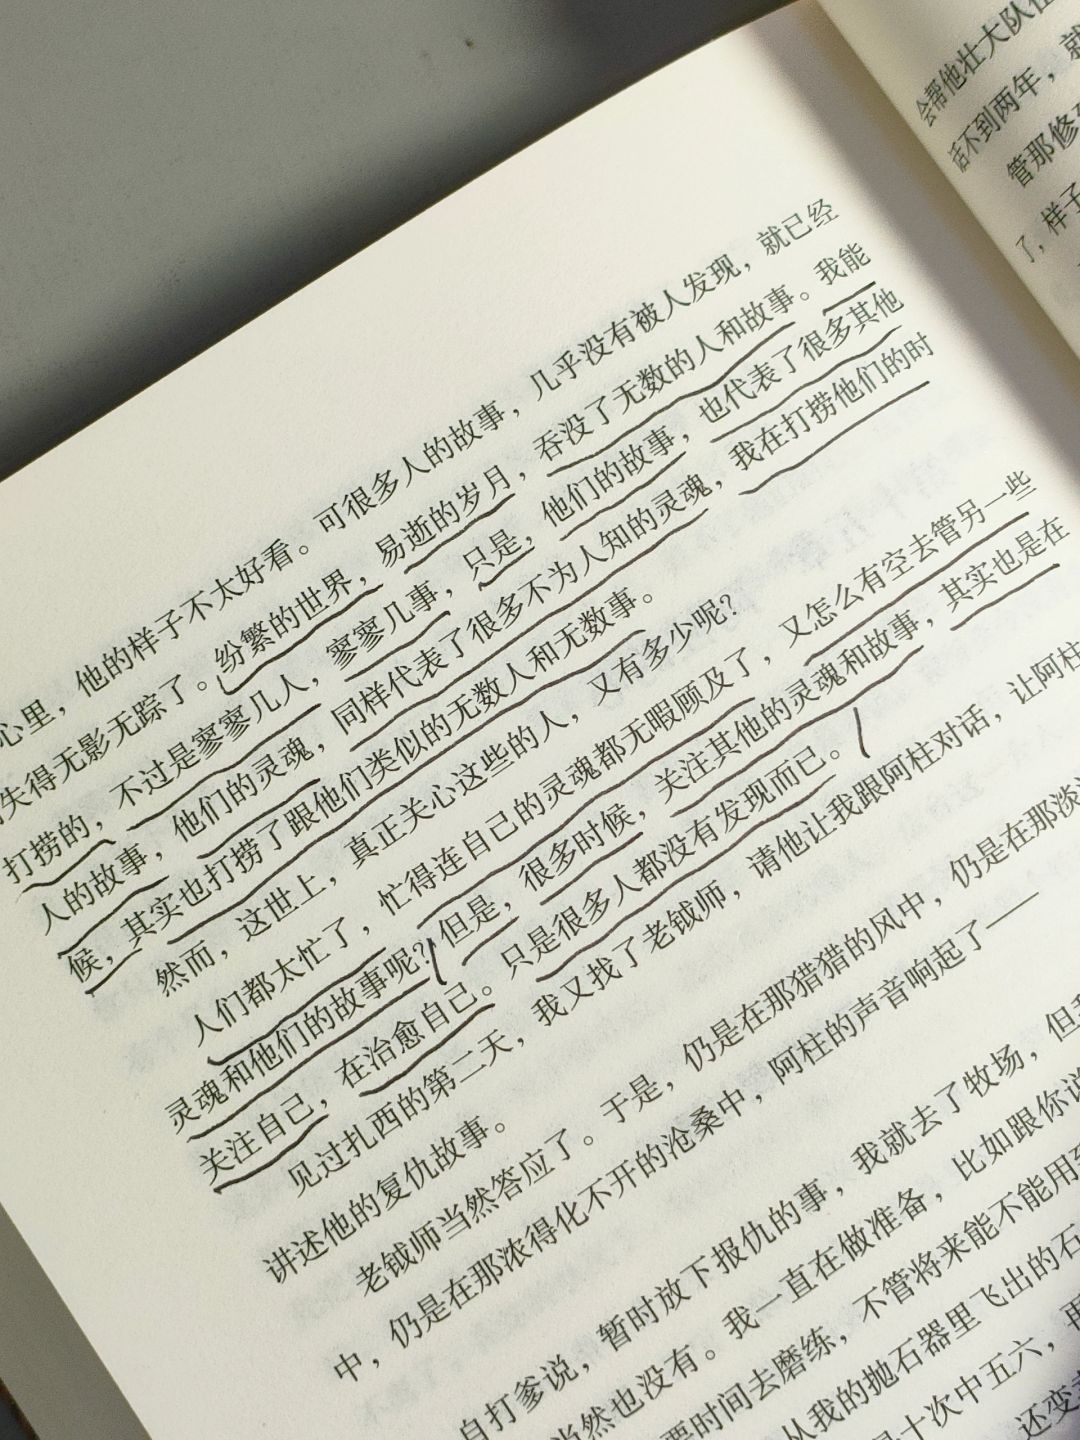 心里，他的样子不太好看。可很多人的故事，几乎没有被人发现，就已经
失得无影无踪了。纷繁的世界，易逝的岁月，吞没了无数的人和故事。我能
打捞的，不过是寥寥几人，寥寥几事，只是，他们的故事，也代表了很多其他
人的故事，他们的灵魂，同样代表了很多不为人知的灵魂，我在打捞他们的时
候，其实也打捞了跟他们类似的无数人和无数事。
然而，这世上，真正关心这些的人，又有多少呢？
人们都太忙了，忙得连自己的灵魂都无暇顾及了，又怎么有空去管另一些
灵魂和他们的故事呢？但是，很多时候，关注其他的灵魂和故事，其实也是在
关注自己，在治愈自己。只是很多人都没有发现而已。
见过扎西的第二天，我又找了老钺师，请他让我跟阿柱对话，让阿柱
讲述他的复仇故事。
老钺师当然答应了。于是，仍是在那猎猎的风中，仍是在那淡
中，仍是在那浓得化不开的沧桑中，阿柱的声音响起了——
自打爹说，暂时放下报仇的事，我就去了牧场，但
当然也没有。我一直在做准备，比如跟你说
要时间去磨练，不管将来能不能用到
从我的抛石器里飞出的石
十次中五六，再
还变
会帮他壮大队伍
活不到两年，就
管那修
了，样子